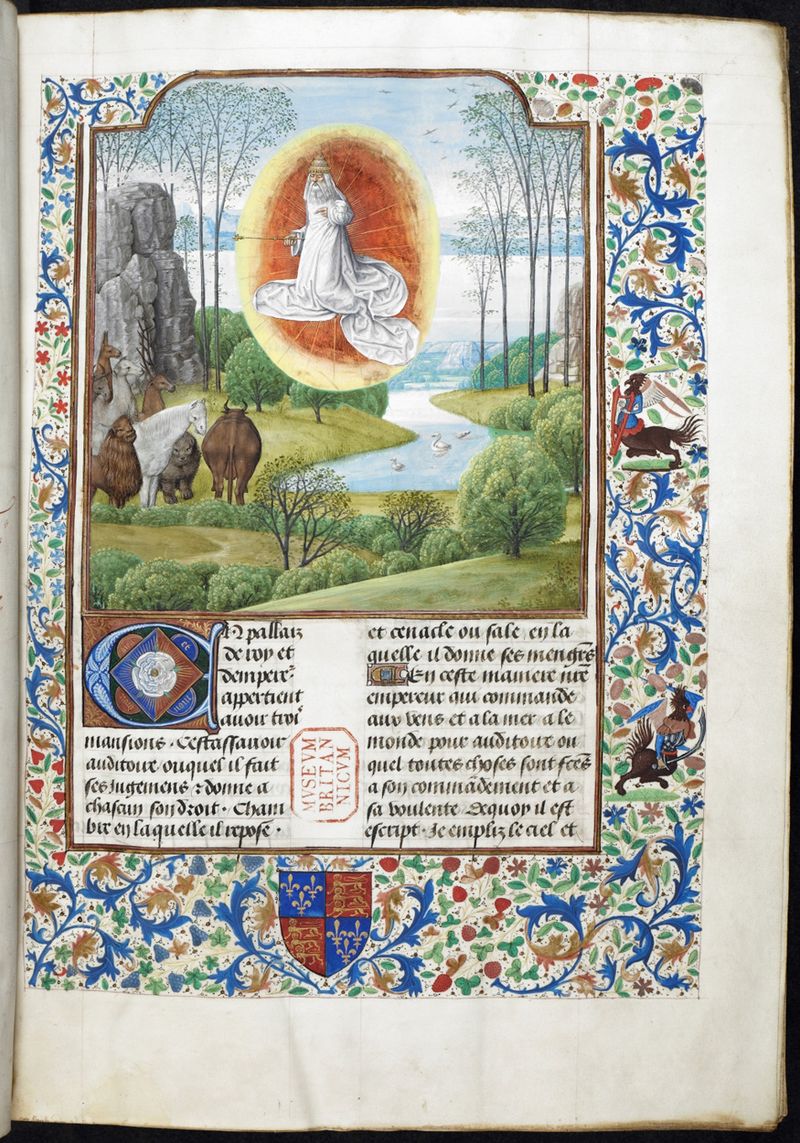 En pallaiz
de roy et
demper͛
appertient
auoir troi͛
mansions . Cestassauoir
auditoire ouquel il fait
ses Iugemens ⁊ donne a
chascun son droit . Cham
bre en laquelle il repose .
et cenacle ou sale en la
quelle il donne ses mengrs̄
En ceste maniere nr̄e
empereur qui commande
aux vens et a la mer a le
monde pour auditoire ou
quel toutes choses sont fc̄es
a son commādement et a
sa voulente Dequoy il est
escript . Je empliz le ciel et
MVSEVM
BRITAN
NICVM